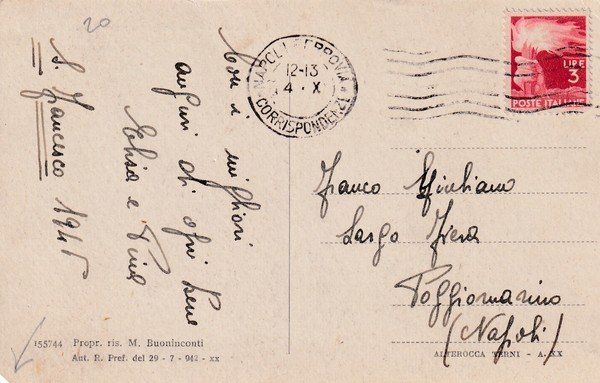 20
Con i migliori
auguri di ogni bene
Elisa e Pina
S. Francesco 194
NAPOLI FERROVIA
12-13
4 · X
CORRISPONDENZE
LIRE
3
POSTE ITALIANE
Franco Giuliano
Largo
Poggiomarino
(Napoli)
155744 Propr. ris. M. Buoninconti
Aut. R. Pref. del 29 - 7 - 942 - xx
ALTEROCCA TERNI - A. XX